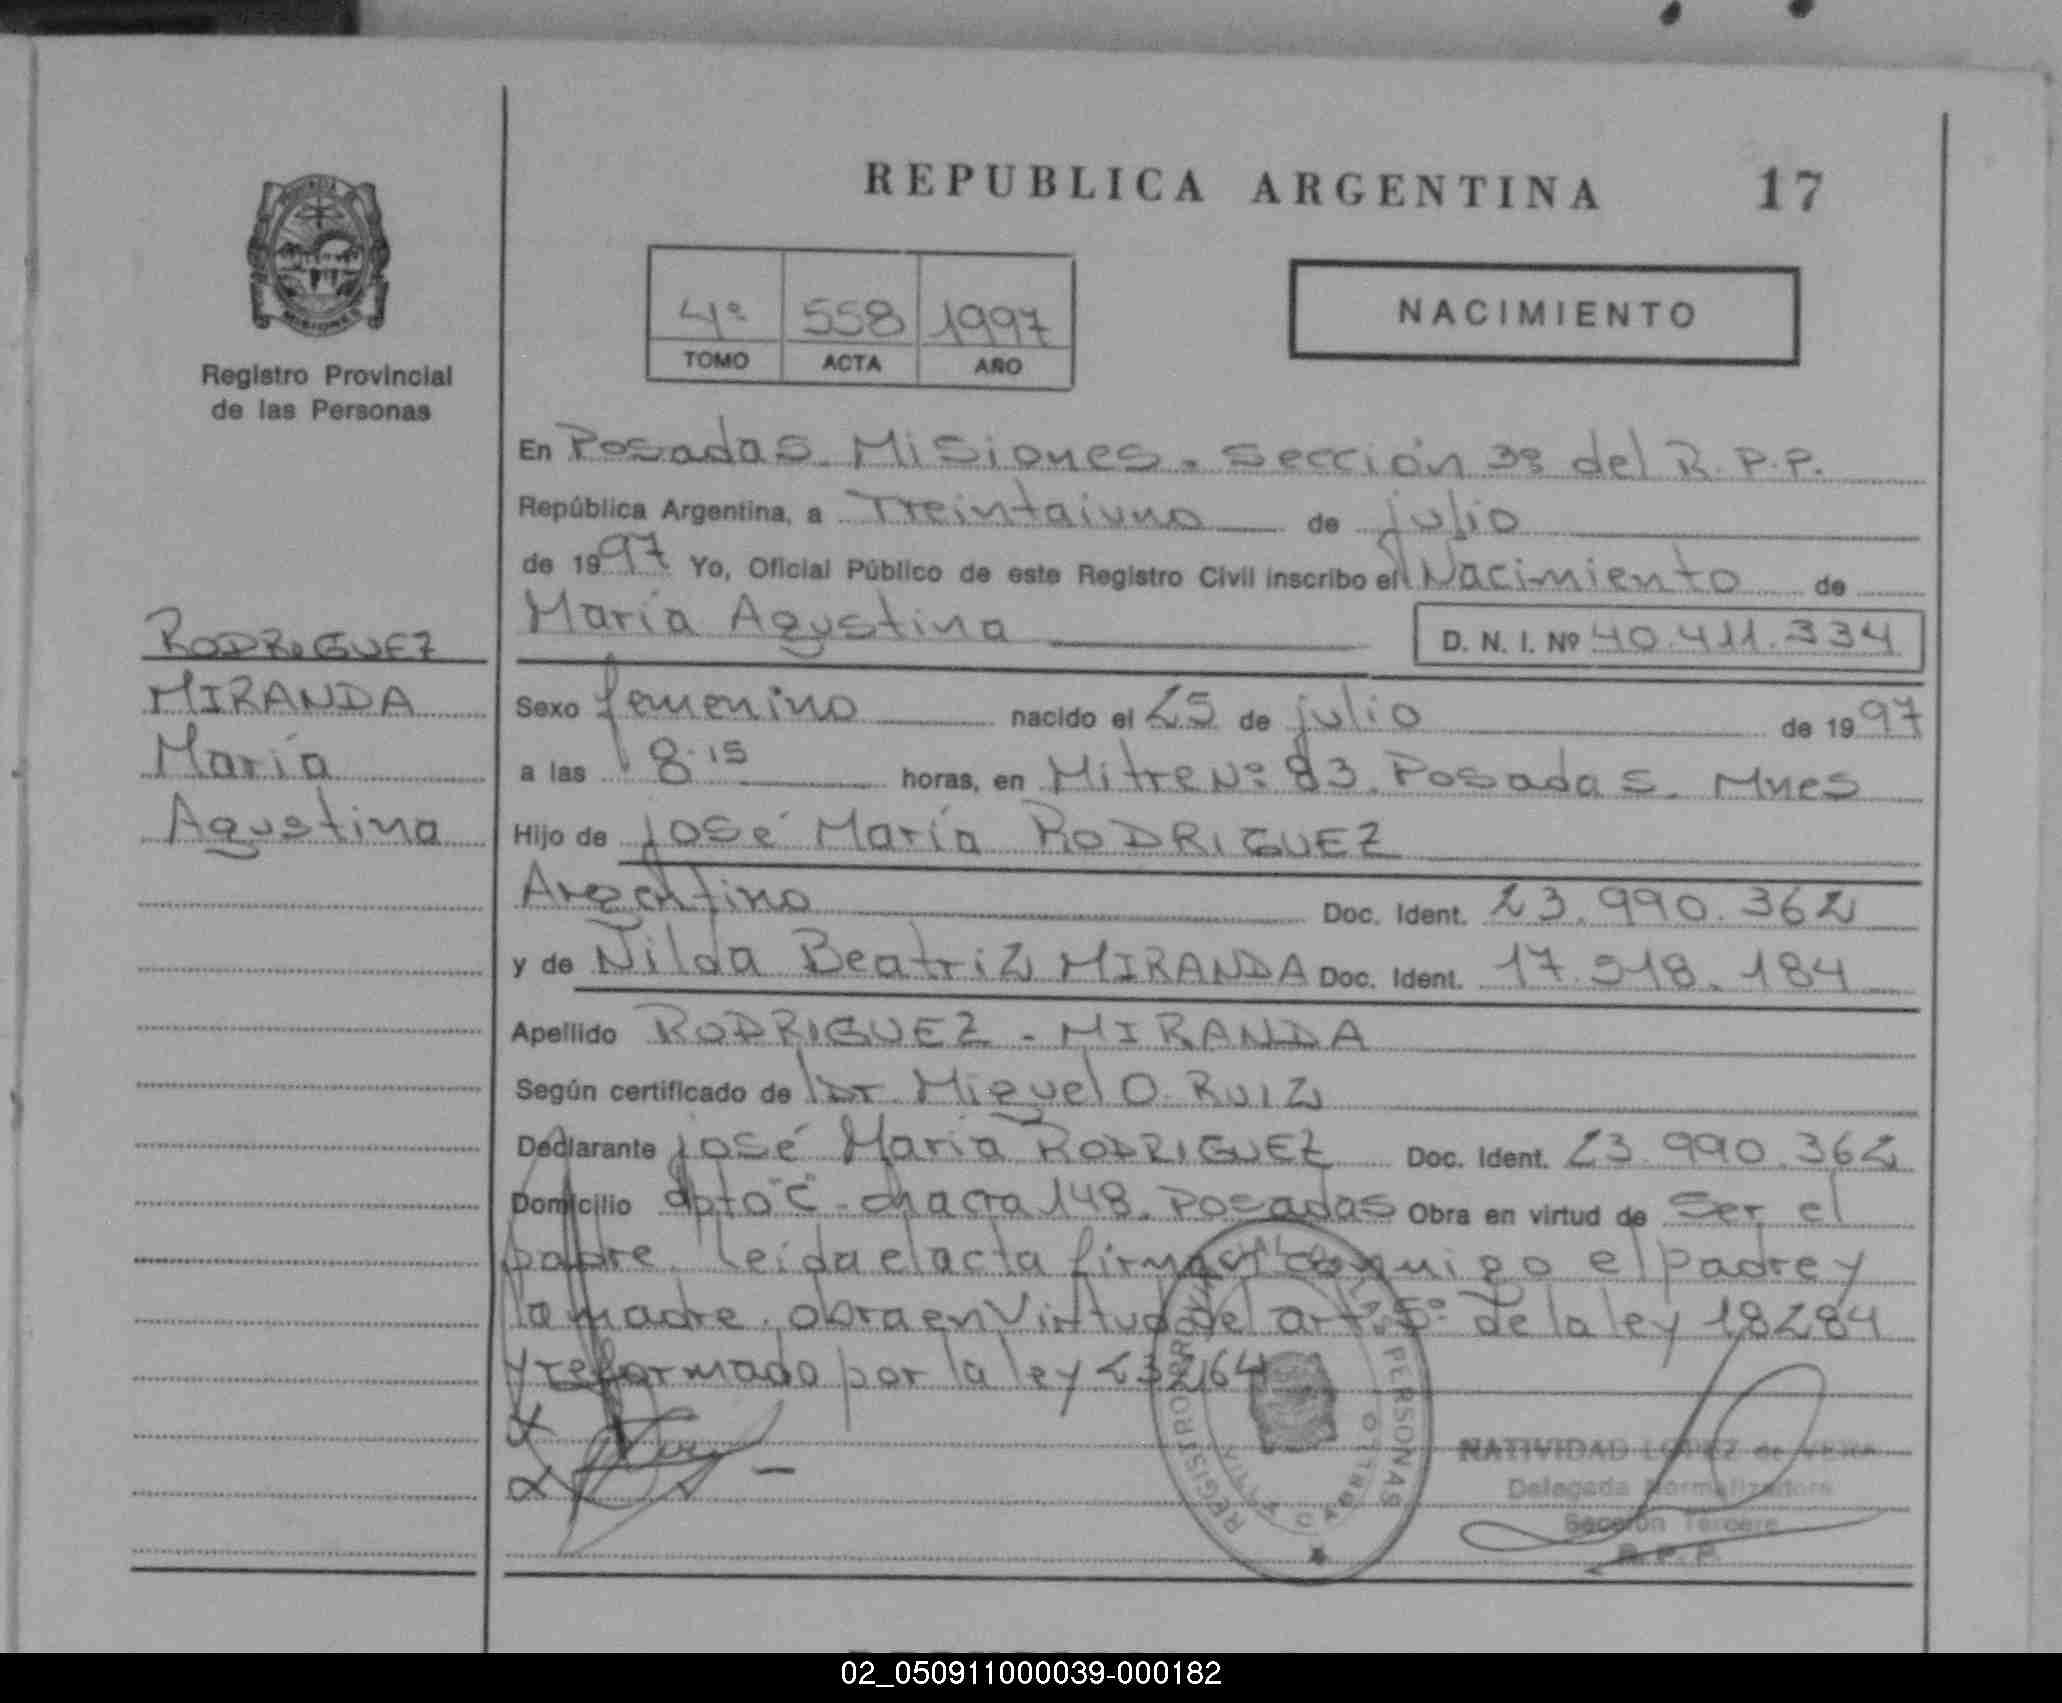 REPUBLICA ARGENTINA 17
4º 558 1997
TOMO ACTA AÑO
NACIMIENTO
MISIONES
Registro Provincial
de las Personas
RODRIGUEZ
MIRANDA
María
Agustina
En Posadas. Misiones. Sección 3º del R.P.P.
República Argentina, a Treintaiuno de julio
de 1997 Yo, Oficial Público de este Registro Civil inscribo el Nacimiento de
María Agustina D. N. I. Nº 40.411.334
Sexo femenino nacido el 25 de julio de 1997
a las 8.15 horas, en Mitre Nº 83. Posadas. Mnes
Hijo de José María RODRIGUEZ
Argentino Doc. Ident. 23.990.362
y de Nilda Beatriz MIRANDA Doc. Ident. 17.918.184
Apellido RODRIGUEZ - MIRANDA
Según certificado de Dr. Miguel O. RUIZ
Declarante José María RODRIGUEZ Doc. Ident. 23.990.362
Domicilio dpto "C" - chacra 148. Posadas Obra en virtud de ser el
padre. Leída el acta firman conmigo el padre y
la madre. obra en virtud del art. 5º de la ley 18284
y reformado por la ley 23264
REGISTRO PERSONAS
NATIVIDAD LOPEZ de VERA
Delegada Normalizadora
Sección Tercera
R. P. P.
02_050911000039-000182